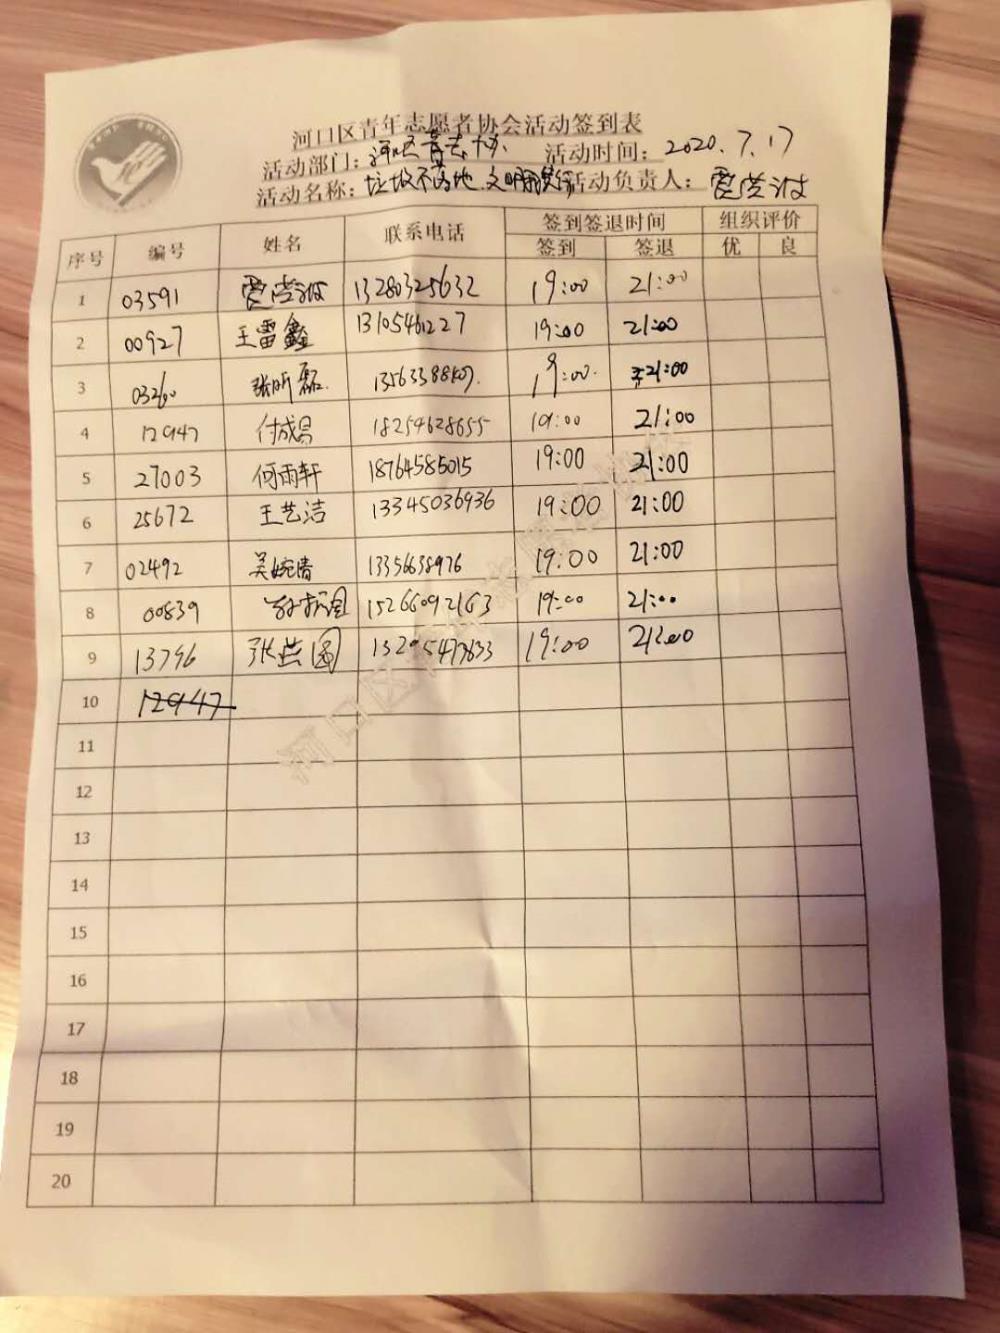 河口区青年志愿者协会活动签到表
活动部门：河口区青志协 活动时间：2020.7.17
活动名称：垃圾不落地 文明 活动负责人：
序号 编号 姓名 联系电话 签到签退时间 组织评价
签到 签退 优 良
1 03591 13280325632 19:00 21:00
2 00927 王雷鑫 13105461227 19:00 21:00
3 03260 张昕磊 19:00 21:00
4 12947 付成昌 18254628655 19:00 21:00
5 27003 何雨轩 18764585015 19:00 21:00
6 25672 王艺洁 13345036936 19:00 21:00
7 02492 吴婉清 13356638976 19:00 21:00
8 00839 15266092163 19:00 21:00
9 13796 张燕园 19:00 21:00
10 12947
11
12
13
14
15
16
17
18
19
20
河口区青年志愿者协会